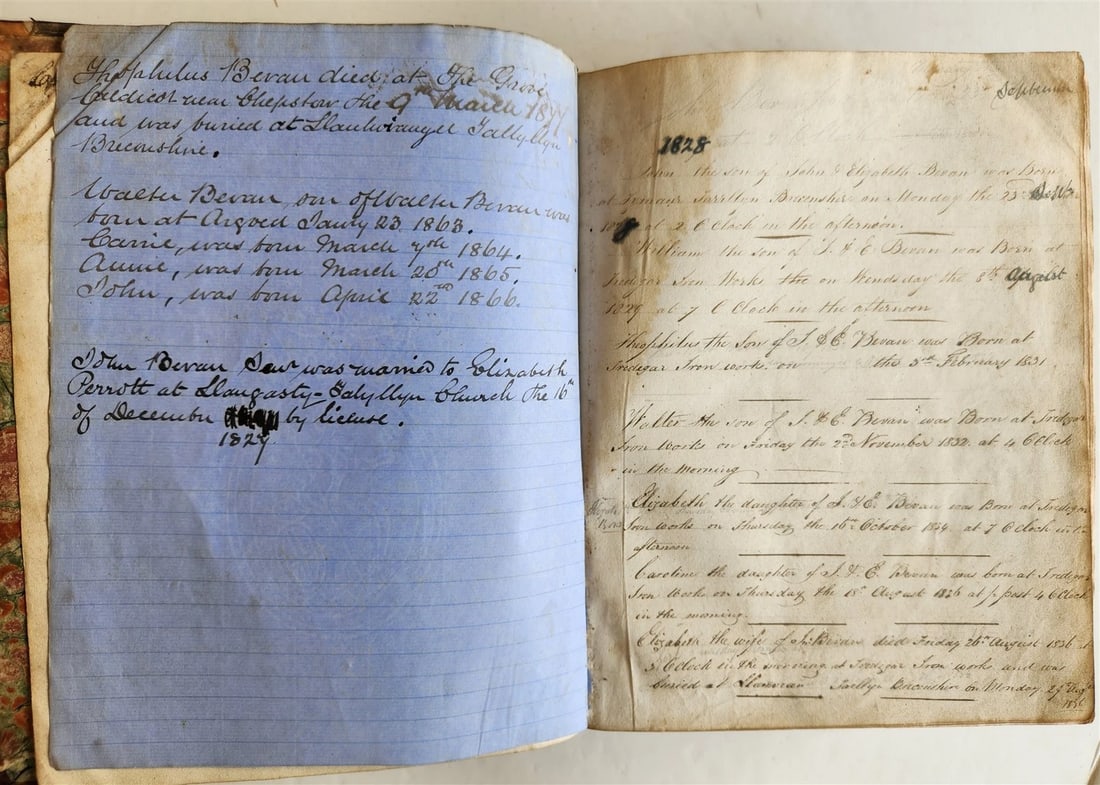 Theophilus Bevan died at The Grove
Caldicot near Chepstow the 9th March 1877
and was buried at Llanhirangel Tallyllyn
Breconshire.
Walter Bevan, son of Walter Bevan was
born at Argoed Jany 23 1863.
Carrie, was born March 7th 1864.
Annie, was born March 20th 1865.
John, was born April 22nd 1866.
John Bevan Senr was married to Elizabeth
Perrott at Llangasty-Talyllyn Church the 16th
of December by license.
1827
September
1828
John the son of John & Elizabeth Bevan was Born
at Breconshire on Monday the 23rd
at 2 O Clock in the afternoon.
William the son of J. & E Bevan was Born at
Tredegar Iron Works the on Wendsday the 5th August
1829 at 7 O Clock in the afternoon
Theophilus the Son of J. & E. Bevan was Born at
Tredegar Iron works on the 5th February 1831
Walter the son of J. & E. Bevan was Born at Tredegar
Iron Works on Friday the 2nd November 1832 at 4 O Clock
in the morning
Elizabeth the daughter of J. & E. Bevan was Born at Tredegar
Iron works on Thursday the 16th October 1834 at 7 O Clock in the
afternoon
Caroline the daughter of J. & E. Bevan was born at Tredegar
Iron Works on Thursday the 18th August 1836 at ½ past 4 O Clock
in the morning
Elizabeth the wife of Jn Bevan died Friday 26th August 1836 at
5 O Clock in the morning at Tredegar Iron works and was
buried at Breconshire on Monday 29th Augt
1836